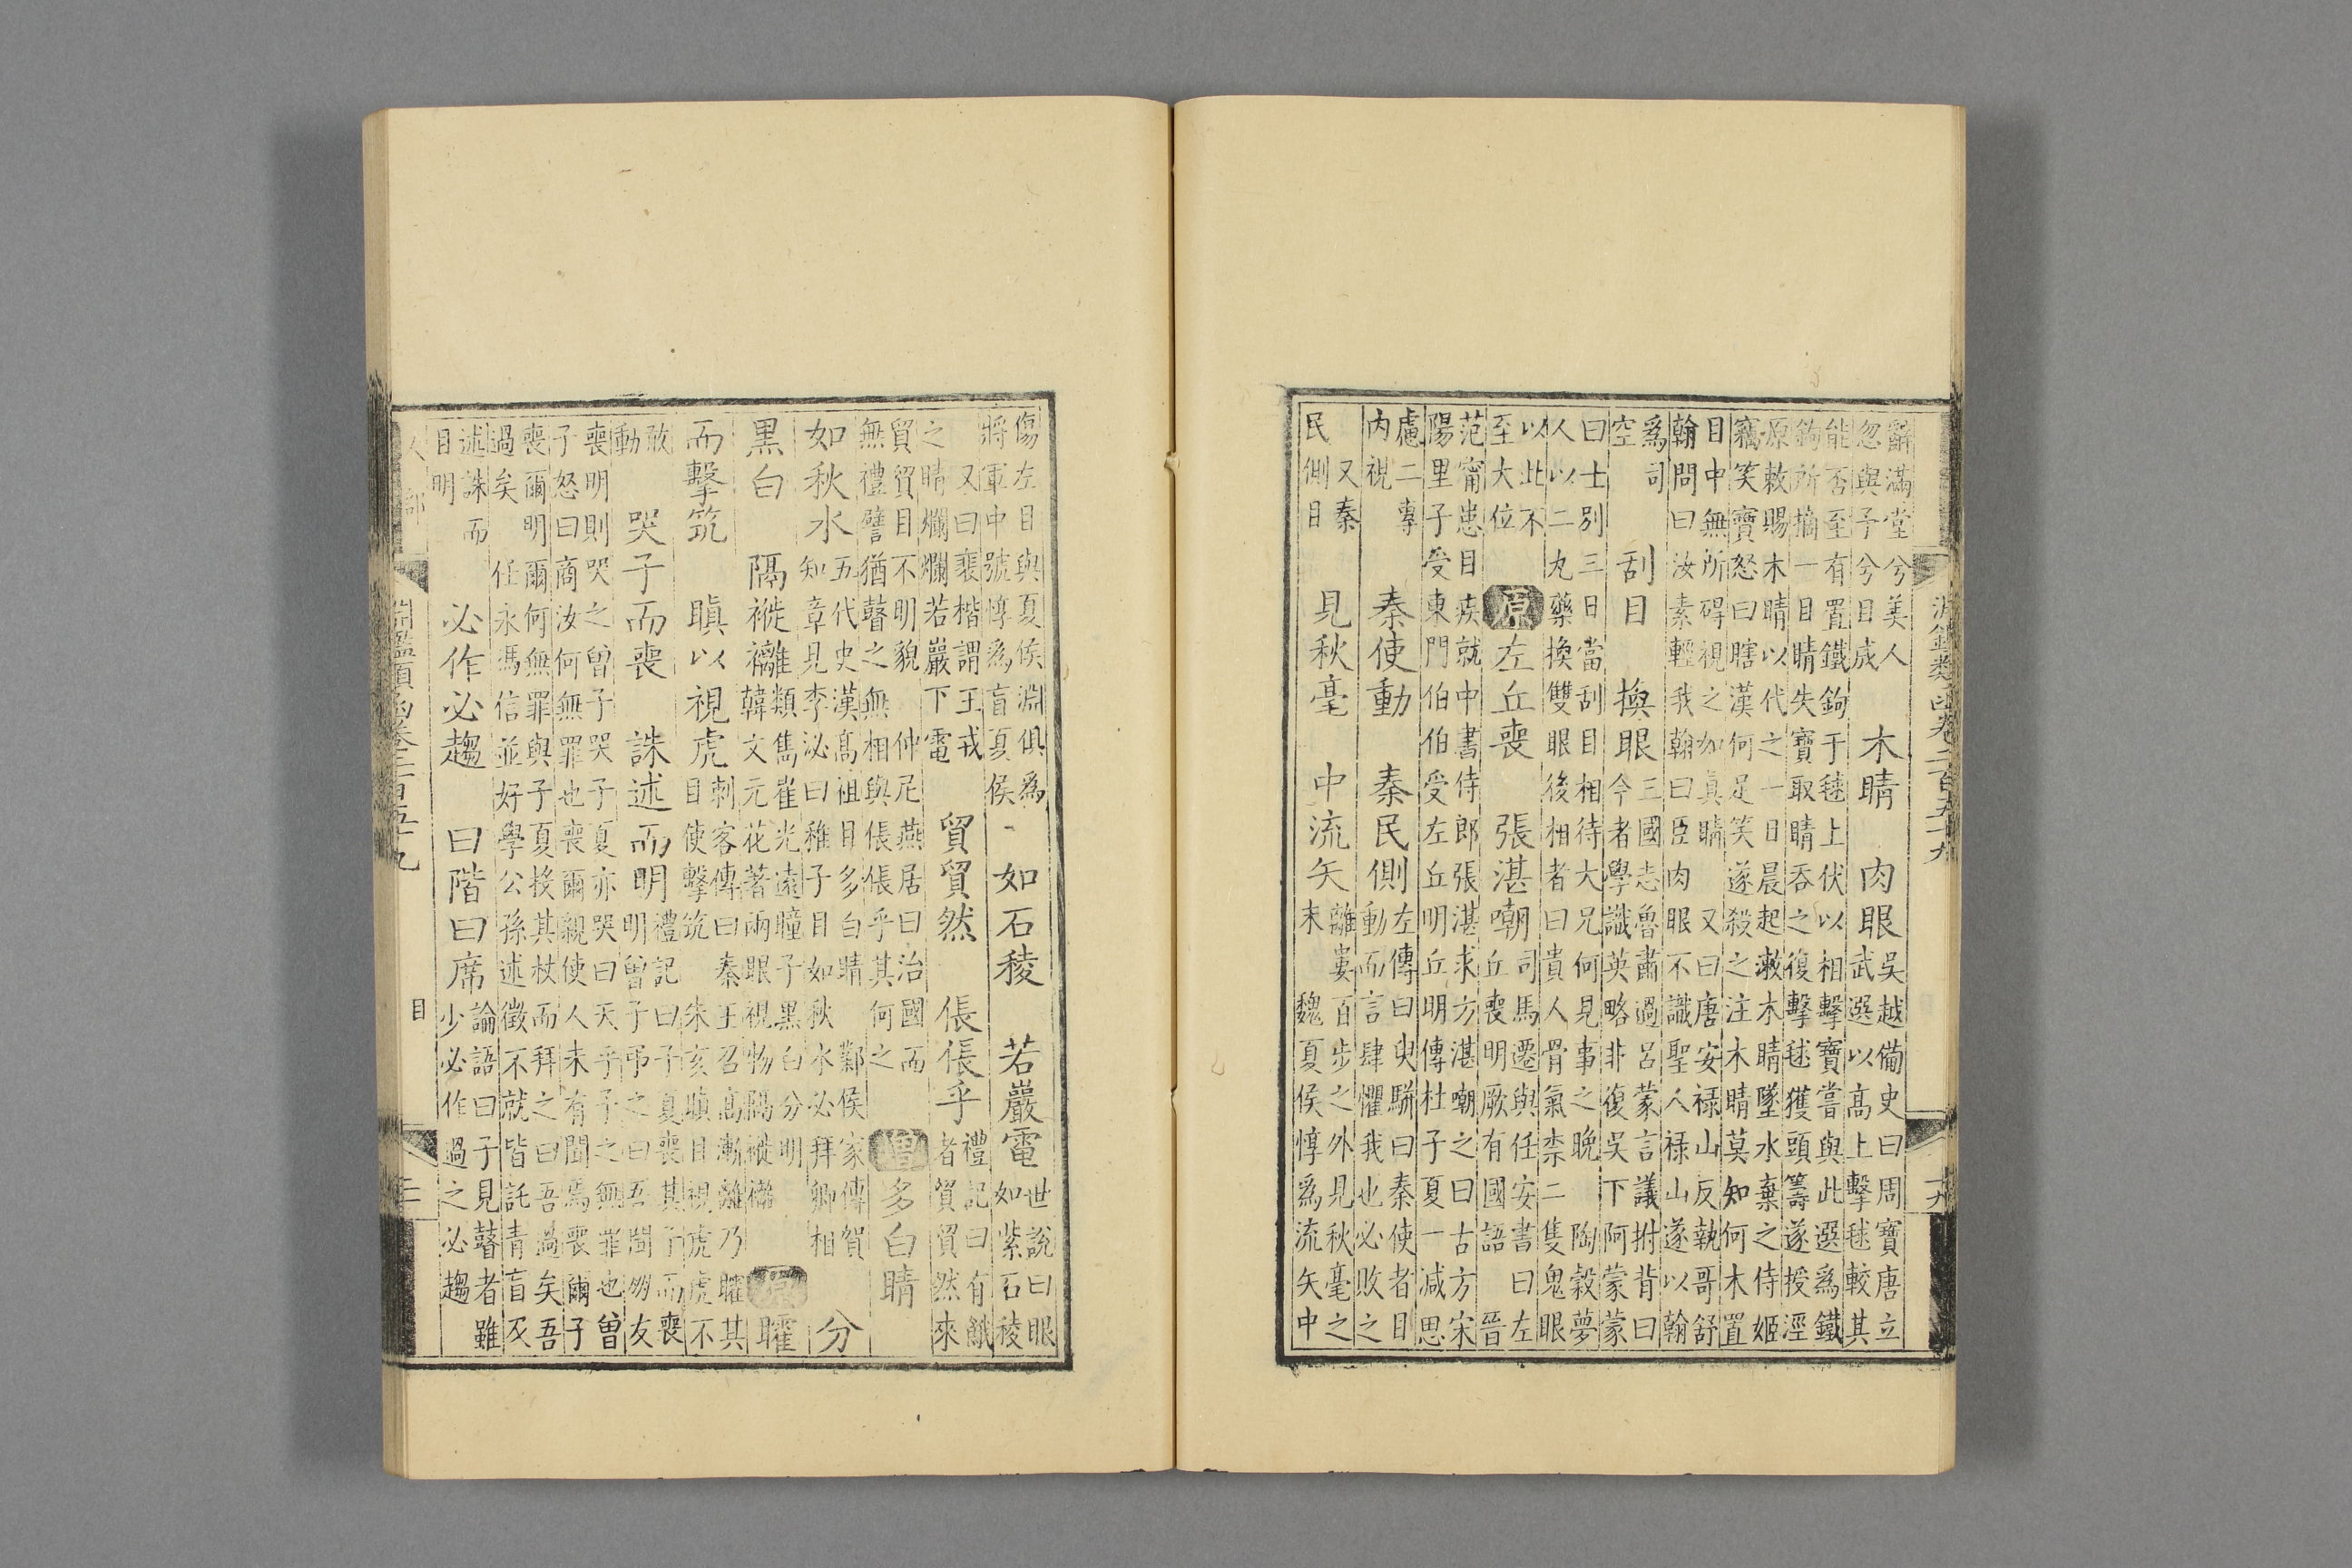 淵鑑類函卷二百五十九
十九
辭滿堂兮美人
忽與子兮目成
木睛 肉眼
吳越備史曰周寶唐立
武選以高上擊毬較其
能否至有置鐵鉤于毬上伏以相擊寶嘗與此選爲鐵
鉤所摘一目睛失寶取睛吞之復擊毬獲頭籌遂授涇
原敕賜木睛以代之一日晨起漱木睛墜水棄之侍姬
竊笑寶怒曰瞎漢何足笑遂殺之注木睛莫知何木置
目中無所碍視之如真睛 又曰唐安禄山反執哥舒
翰問曰汝素輕我翰曰臣肉眼不識聖人禄山遂以翰
爲司
空
刮目 換眼
三國志魯肅過呂蒙言議拊背曰
今者學識英略非復吳下阿蒙蒙
曰士別三日當刮目相待大兄何見事之晚 陶穀夢
人以二丸藥換雙眼後相者曰貴人骨氣柰二隻鬼眼
以此不
至大位
原 左丘喪 張湛嘲
司馬遷與任安書曰左
丘喪明厥有國語 晉
范甯患目疾就中書侍郎張湛求方湛嘲之曰古方宋
陽里子受東門伯伯受左丘明丘明傳杜子夏一減思
慮二專
內視
秦使動 秦民側
左傳曰臾駢曰秦使者目
動而言肆懼我也必敗之
又秦
民側目
見秋毫 中流矢
離婁百步之外見秋毫之
末 魏夏侯惇爲流矢中
傷左目與夏侯淵俱爲
將軍中號惇爲盲夏侯
如石稜 若巖電
世說曰眼
如紫石稜
又曰裴楷謂王戎
之睛爛爛若巖下電
貿貿然 倀倀乎
禮記曰有餓
者貿貿然來
貿貿目不明貌 仲尼燕居曰治國而
無禮譬猶瞽之無相與倀倀乎其何之
增 多白睛
如秋水
五代史漢高祖目多白睛 鄴侯家傳賀
知章見李泌曰稚子目如秋水必拜卿相
分
黑白 隔褷䙰
類雋崔光遠瞳子黑白分明
韓文元花著兩眼視物隔褷䙰
原 矐
而擊筑 瞋以視虎
刺客傳曰 秦王召高漸離乃矐其
目使擊筑 朱亥瞋目視虎虎不
敢
動
哭子而喪 誅述而明
禮記曰子夏喪其子而喪
明曾子弔之曰吾聞朋友
喪明則哭之曾子哭子夏亦哭曰天乎予之無罪也曾
子怒曰商汝何無罪也喪爾親使人未有聞焉喪爾子
喪爾明爾何無罪與子夏投其杖而拜之曰吾過矣吾
過矣 任永馮信並好學公孫述徵不就皆託青盲及
述誅而
目明
必作必趨 曰階曰席
論語曰子見瞽者雖
少必作過之必趨
人部
淵鑑類函卷二百五十九
目